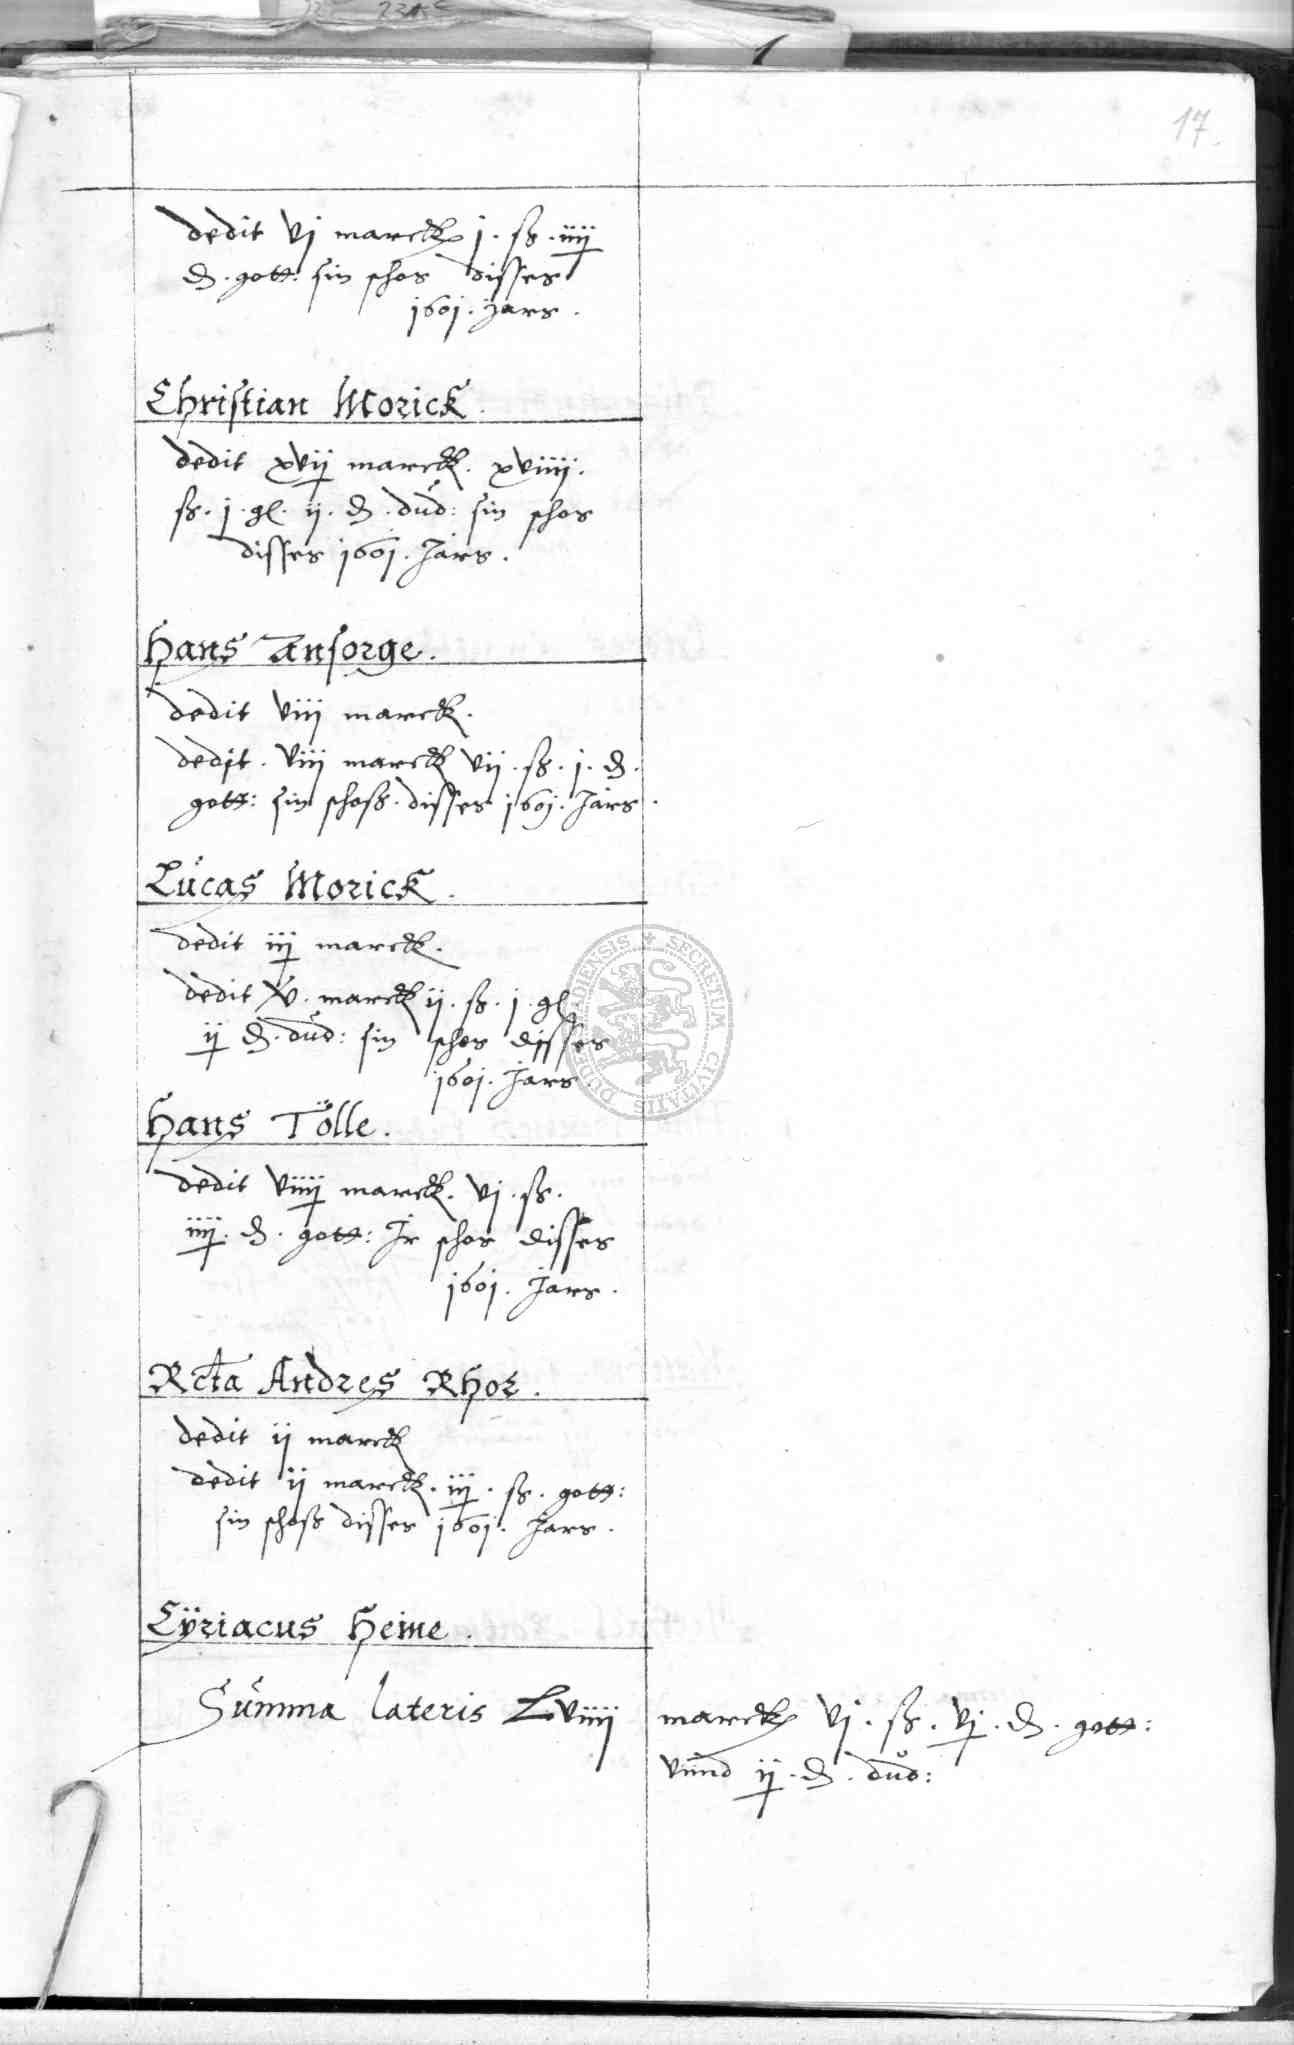 17.
dedit vj marck j. ß. iiij
₰. gott: sin schos disses
1601. Jars.
Christian Morick.
dedit xvij marck. xviiij.
ß. j. gl. ij. ₰. dud: sin schos
disses 1601. Jars.
Hans Ansorge.
dedit viij marck.
dedit. viij marck vij. ß. j. ₰.
gott: sin schoß. disses 1601. Jars.
Lucas Morick.
dedit iij marck.
dedit v. marck ij. ß. j. gl.
ij ₰. dud: sin schos disses
1601. Jars.
Hans Tölle.
dedit viiij marck. vj. ß.
iiij. ₰. gott: Jr schos disses
1601. Jars.
Rcta Andres
dedit ij marck
dedit ij marck. iij. ß. gott:
sin schoß disses 1601. Jars.
Cÿriacus Heine.
Summa lateris Lviiij marck vj. ß. vj. ₰. gott:
vnnd ij. ₰. dud:
SECRETUM CIVITATIS DUDERSTADIENSIS